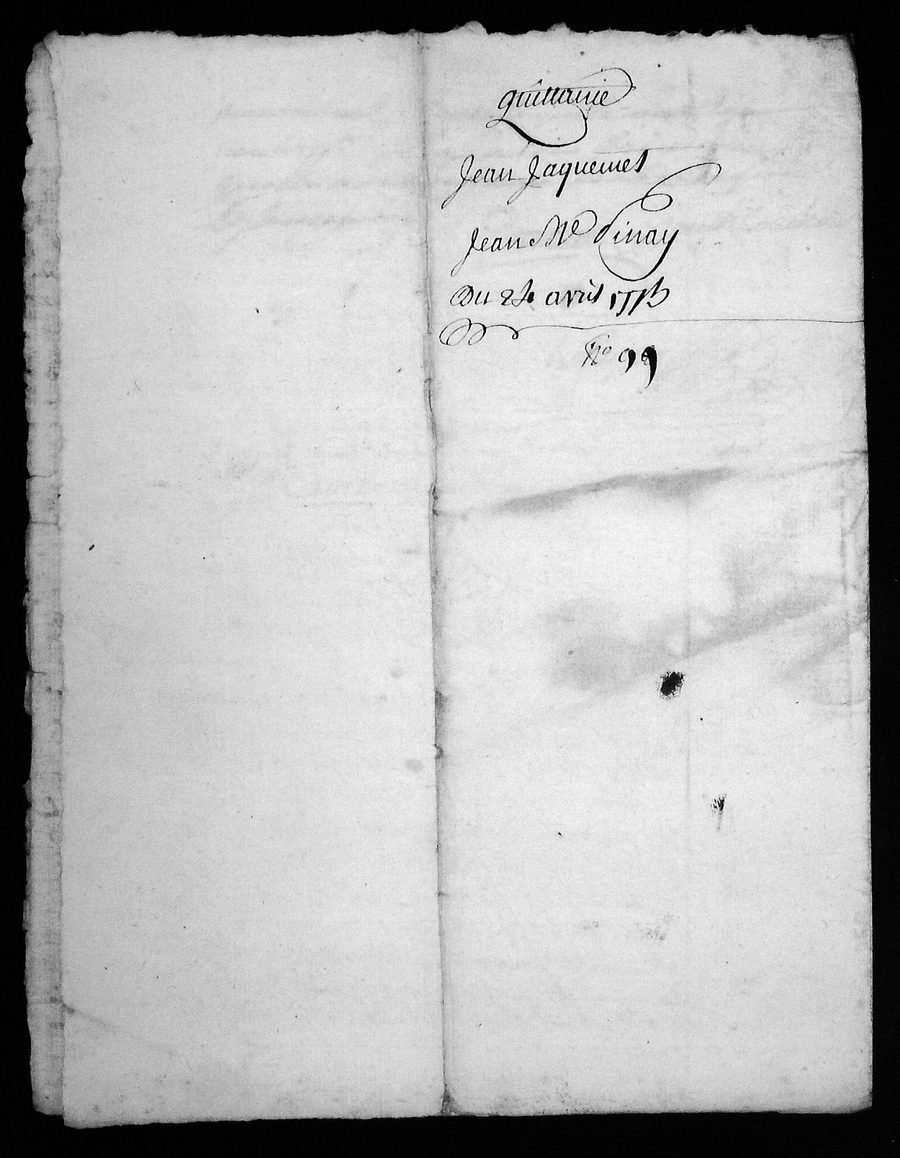 quittance
Jean Jaquemet
Jean Me Dinay
Du 24 avril 1773
No 99